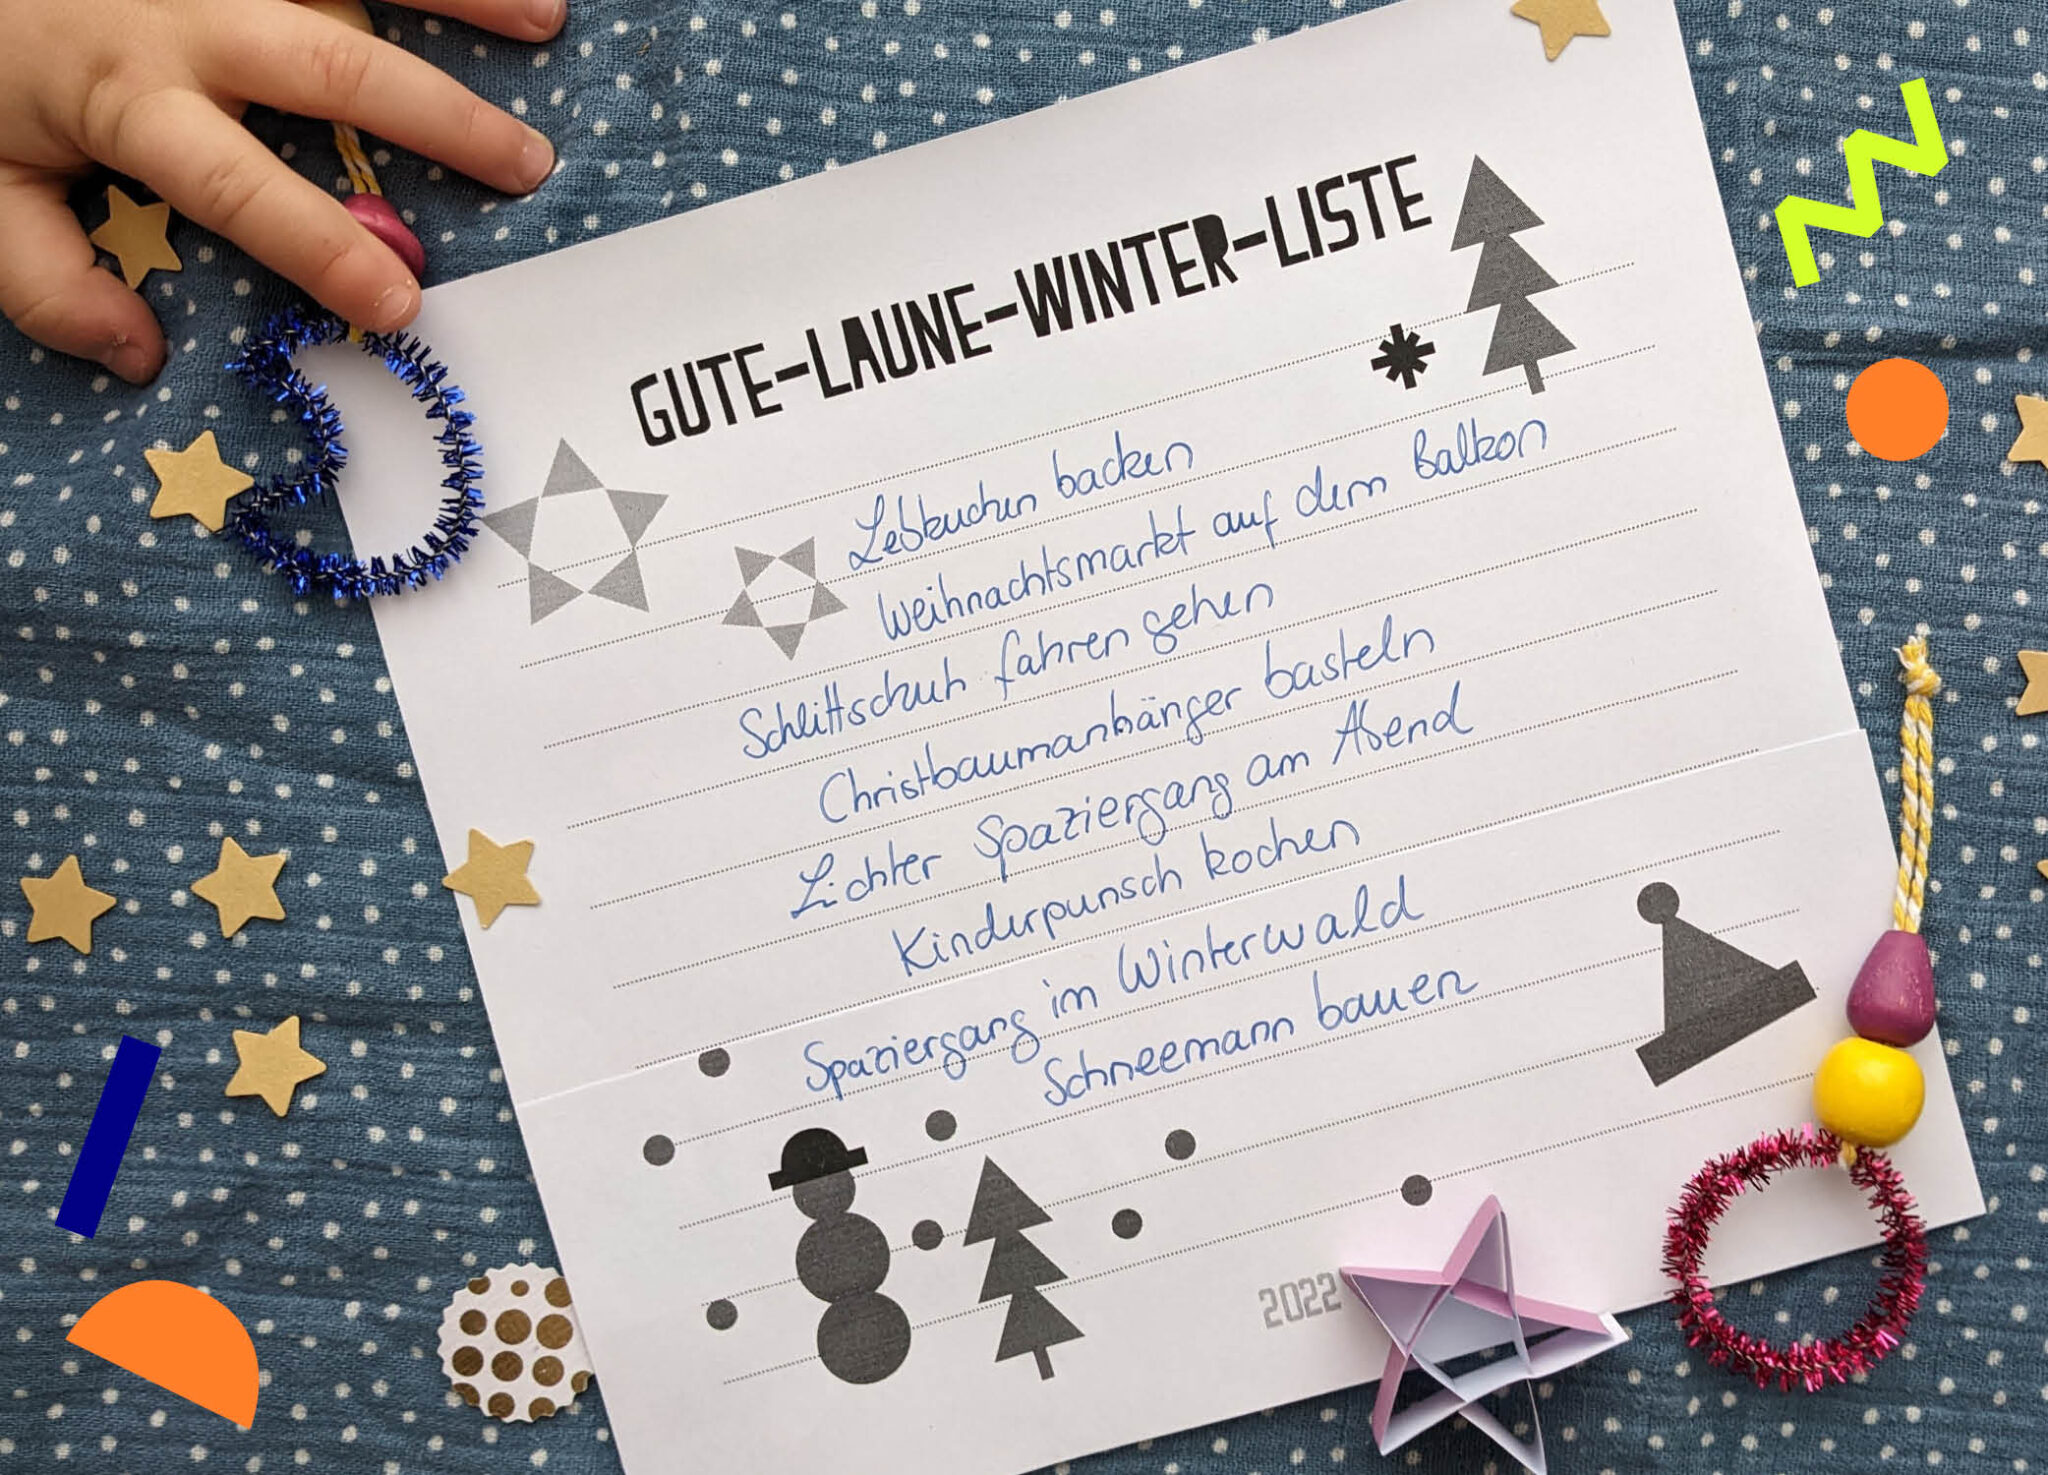 GUTE-LAUNE-WINTER-LISTE
Lebkuchen backen
Weihnachtsmarkt auf dem Balkon
Schlittschuh fahren gehen
Christbaumanhänger basteln
Lichter Spaziergang am Abend
Kinderpunsch kochen
Spaziergang im Winterwald
Schneemann bauen
2022